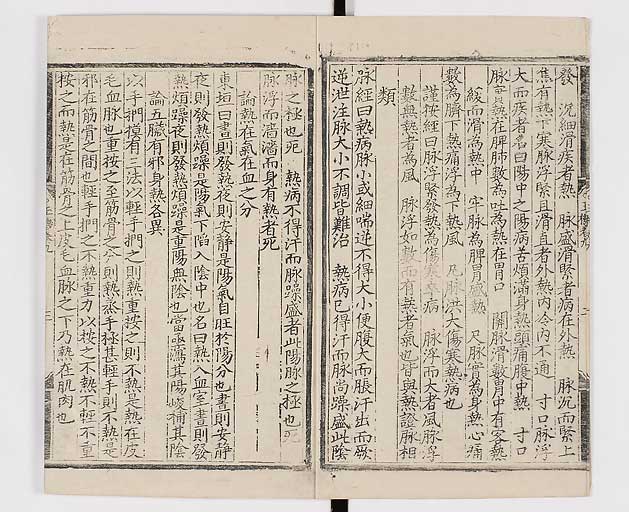 發　沉細滑疾者熱　脉盛滑緊者病在外熱　脉沉而緊上
焦有熱下寒脉浮緊且滑直者外熱內冷內不通　寸口脉浮
大而疾者名曰陽中之陽病苦煩滿身熱頭痛腹中熱　寸口
脉實熱在脾肺數為吐為熱在胃口　關脉滑數胃中有客熱
緩而滑為熱中　牢脉為脾胃盛熱　尺脉實為身熱心痛
數為臍下熱痛浮為下熱風　尺脉洪大傷寒熱病也
謹按經曰脉浮緊發熱為傷寒卒病　脉浮而大者風脉浮
數無熱者為風　脉浮如數而有熱者氣也皆與熱證脉相
類
脉經曰熱病脉小或細喘逆不得大小便腹大而脹汗出而厥
逆泄注脉大小不調皆難治　熱病已得汗而脉尚躁盛此陰
脉之極也死　熱病不得汗而脉躁盛者此陽脉之極也死
脉浮而濇濇而身有熱者死
論熱在氣在血之分
東垣曰晝則發熱夜則安靜是陽氣自旺於陽分也晝則安靜
夜則發熱煩躁是陽氣下陷入陰中也名曰熱入血室晝則發
熱煩躁夜則發熱煩躁是重陽無陰也當亟瀉其陽峻補其陰
論五臟有邪身熱各異
以手捫摸有三法以輕手捫之則熱重按之則不熱是熱在皮
毛血脉也重按之至筋骨之分則熱蒸手極甚輕手則不熱是
邪在筋骨之間也輕手捫之不熱重力以按之不熱不輕不重
按之而熱是在筋骨之上皮毛血脉之下乃熱在肌肉也